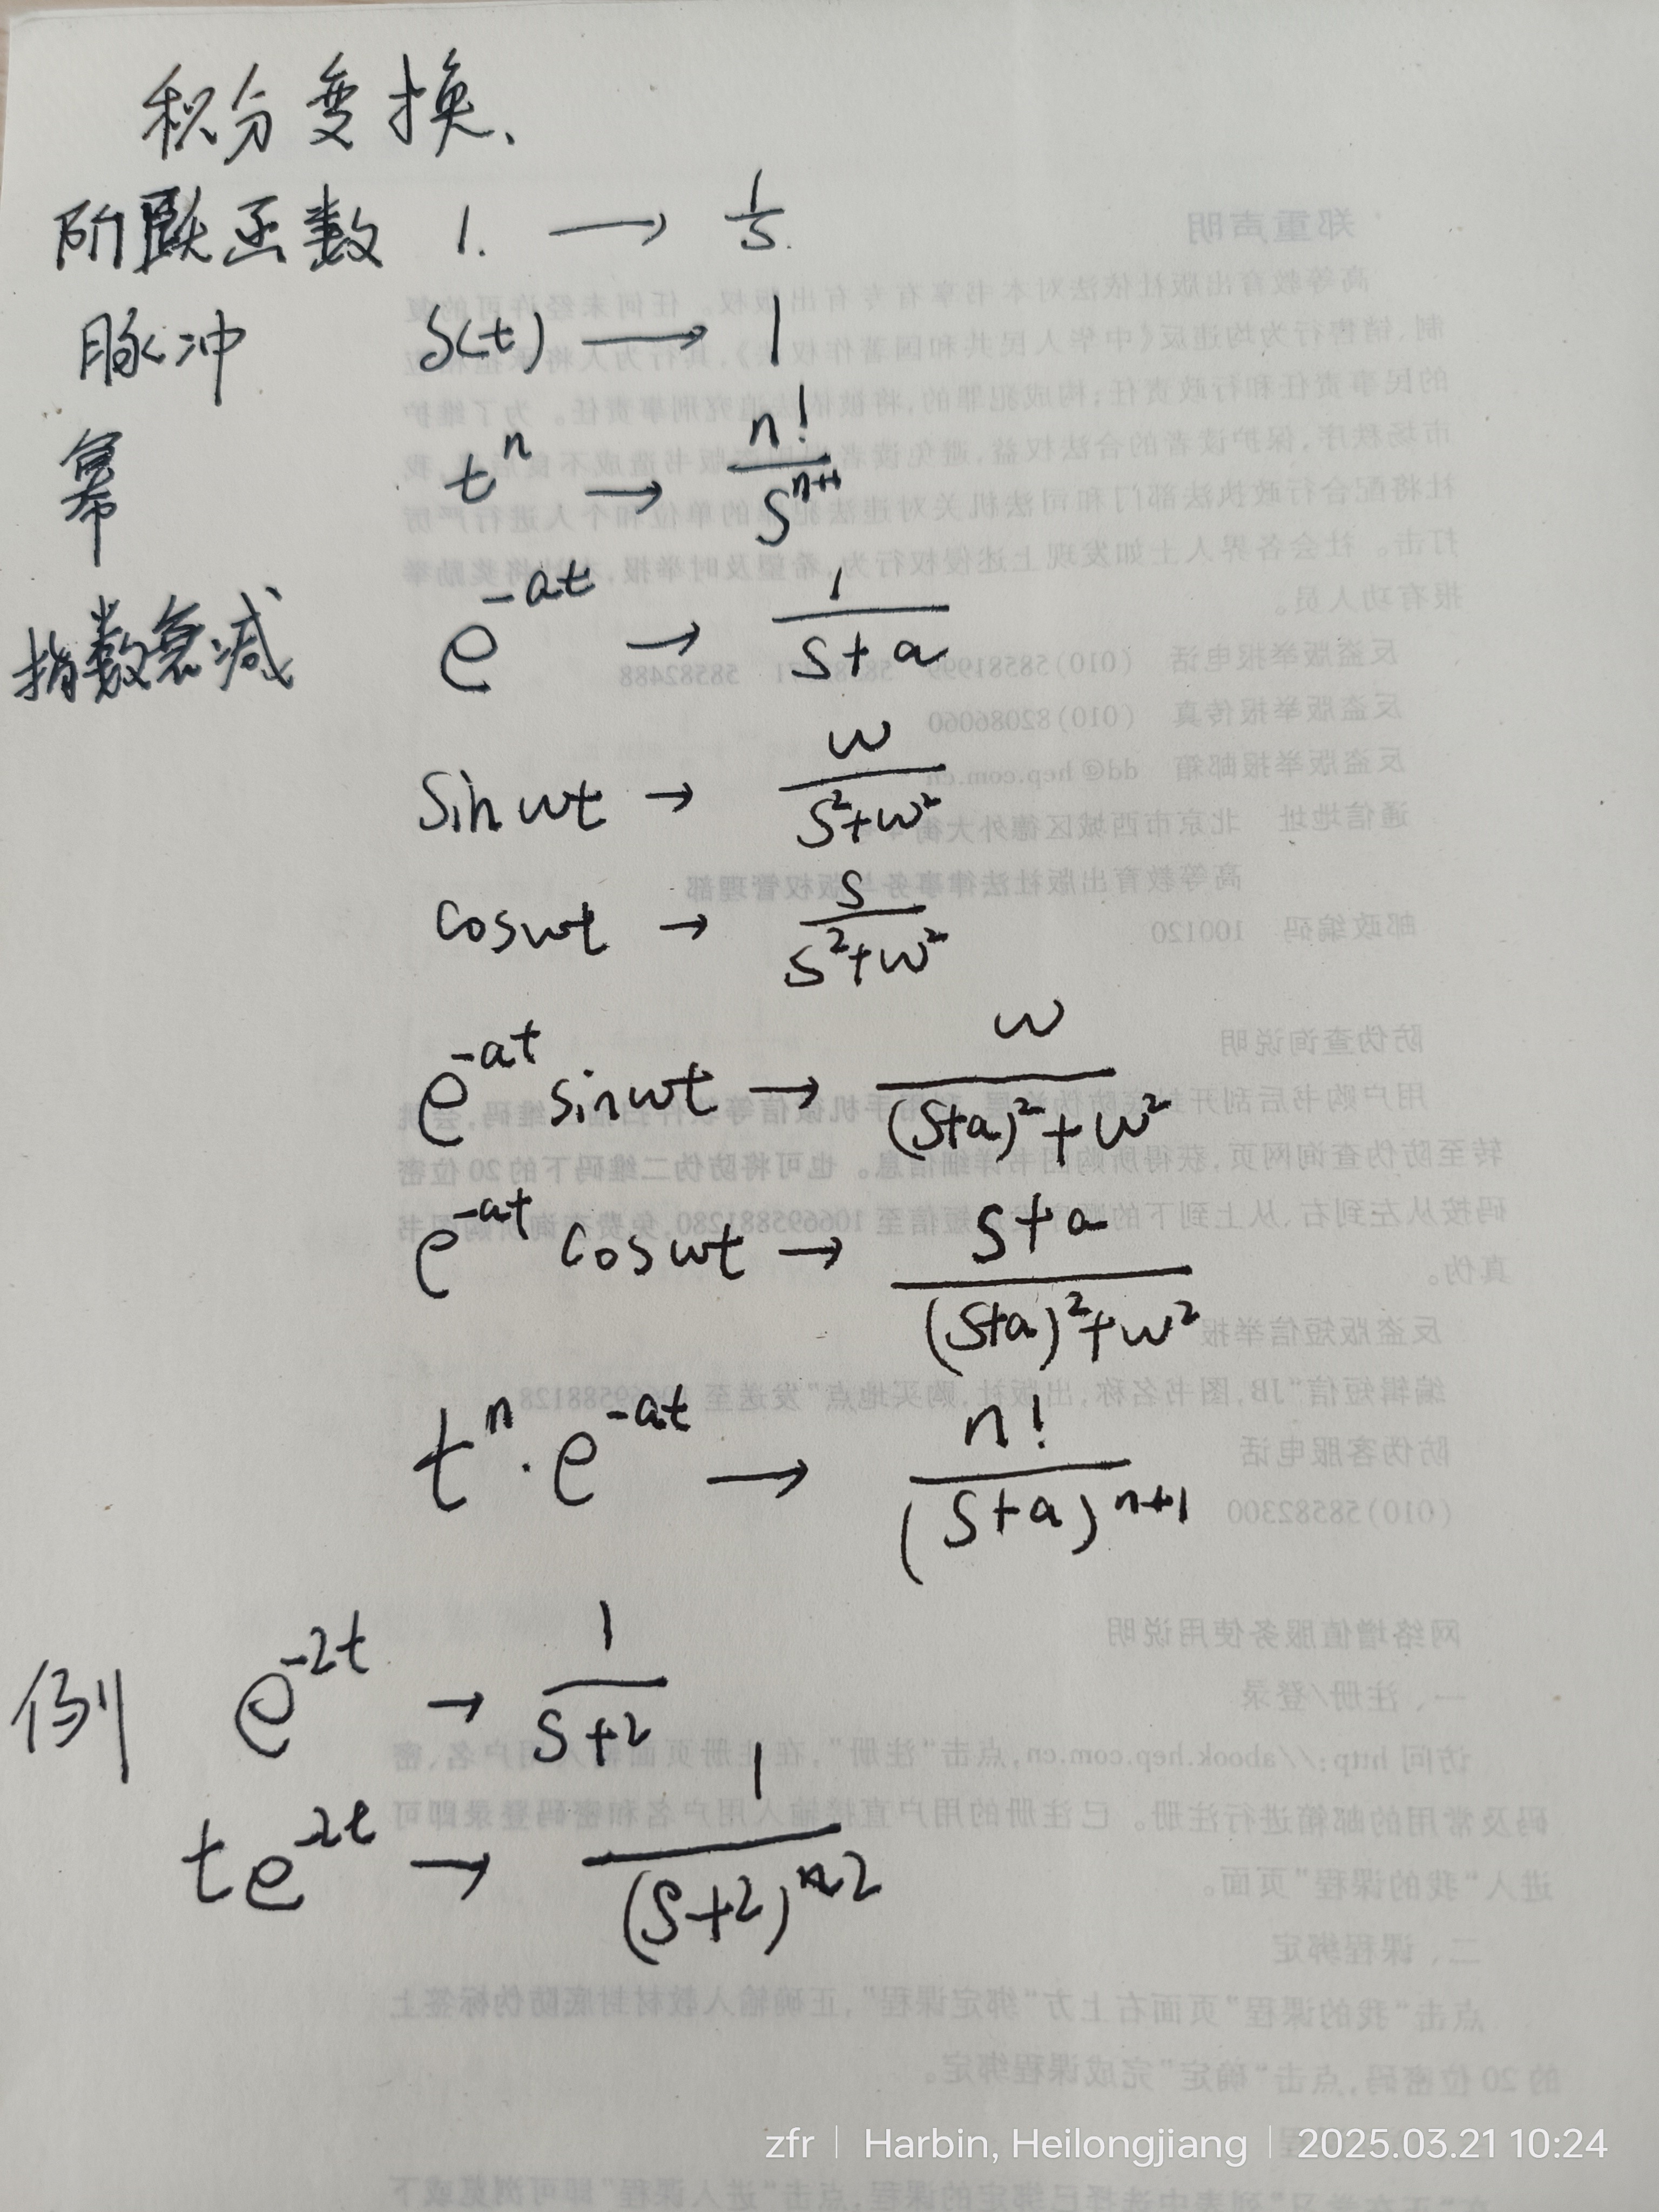 积分变换、
阶跃函数 1. → 1/s.
脉冲 δ(t) → 1
幂 t^n → n!/s^(n+1)
指数衰减 e^(-at) → 1/(s+a)
sin wt → w/(s²+w²)
cos wt → s/(s²+w²)
e^(-at) sin wt → w/((s+a)²+w²)
e^(-at) cos wt → (s+a)/((s+a)²+w²)
t^n · e^(-at) → n!/(s+a)^(n+1)
例 e^(-2t) → 1/(s+2)
te^(-2t) → 1/(s+2)^2
郑重声明
高等教育出版社依法对本书享有专有出版权。任何未经许可的复
的民事责任和行政责任;构成犯罪的,将被依法追究刑事责任。为了维护
社将配合行政执法部门和司法机关对违法犯罪的单位和个人进行严厉
打击。社会各界人士如发现上述侵权行为,希望及时举报,
报有功人员。
反盗版举报电话 (010)58581999 58582488
反盗版举报传真 (010)82086060
反盗版举报邮箱 dd@hep.com.cn
通信地址 北京市西城区德外大街
高等教育出版社法律事务与版权管理部
邮政编码 100120
防伪查询说明
用户购书后刮开封底防伪 手机微信等软件扫描二维码,会跳
转至防伪查询网页,获得所购图书详细信息。也可将防伪二维码下的20位密
码按从左到右、从上到下的顺序发送短信至106695881280,免费查询所购图书
真伪。
反盗版短信举报
编辑短信“JB,图书名称,出版社,购买地点”发送至
防伪客服电话
(010)58582300
网络增值服务使用说明
一、注册/登录
访问http://abook.hep.com.cn,点击“注册”,在注册页面输入用户名、密
码及常用的邮箱进行注册。已注册的用户直接输入用户名和密码登录即可
进入“我的课程”页面。
二、课程绑定
点击“我的课程”页面右上方“绑定课程”,正确输入教材封底防伪标签上
的20位密码,点击“确定”完成课程绑定。
zfr | Harbin, Heilongjiang | 2025.03.21 10:24